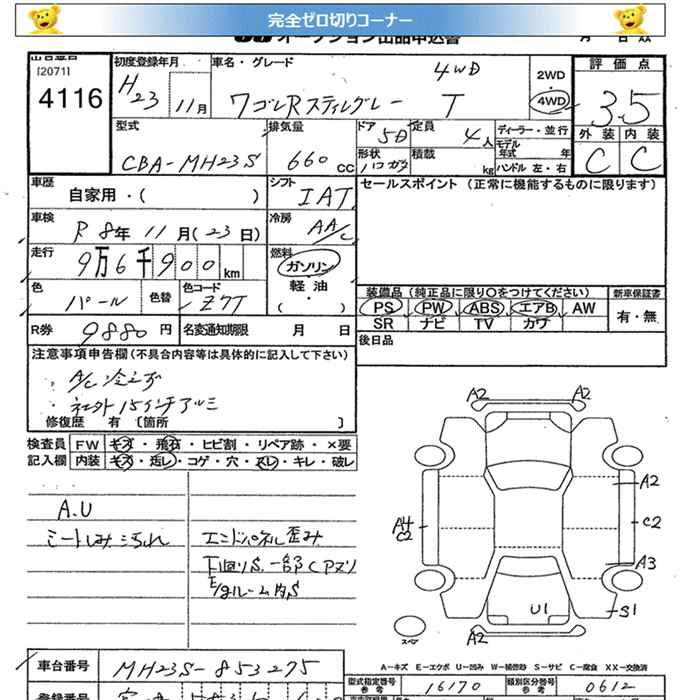 完全ゼロ切りコーナー
オークション出品申込書
[2071]
4116
初度登録年月
H23 11月
車名・グレード
4WD
ワゴンRスティングレー T
2WD
4WD
評価点
3.5
外装 内装
C C
型式
CBA-MH23S
排気量
660 CC
ドア
5D
定員
4人
形状
積載
kg
ディーラー・並行
モデル年式 年
ハンドル 左・右
車歴
自家用・( )
シフト
IAT
セールスポイント (正常に機能するものに限ります)
車検
R8年11月(23日)
冷房
AA/C
走行
9万6千900km
燃料
ガソリン
軽油
・
( )
色
パール
色替
色コード
Z7T
装備品(純正品に限り○をつけてください)
新車保証書
PS PW ABS エアB AW
有・無
SR ナビ TV カワ
R券
9880円
名変通知期限 月 日
後日品
注意事項申告欄(不具合内容等は具体的に記入して下さい)
・A/C冷えず
・社外15インチアルミ
修復歴 有 〔箇所 〕
検査員
FW キズ・飛石・ヒビ割・リペア跡・×要
記入欄
内装 キズ・汚レ・コゲ・穴・スレ・キレ・破レ
A.U
シートしみ汚れ
エンドパネル歪み
下回りS.一部Cアリ
E/gルーム内S
A2 A2
A2
A4
C2
C2
A3
U1
S1
スペア
A2
A-キズ E-エクボ U-凹み W-補修跡 S-サビ C-腐食 XX-交換済
車台番号
MH23S-853275
型式指定番号
参考
16170
類別区分番号
参考
0612
登録番号